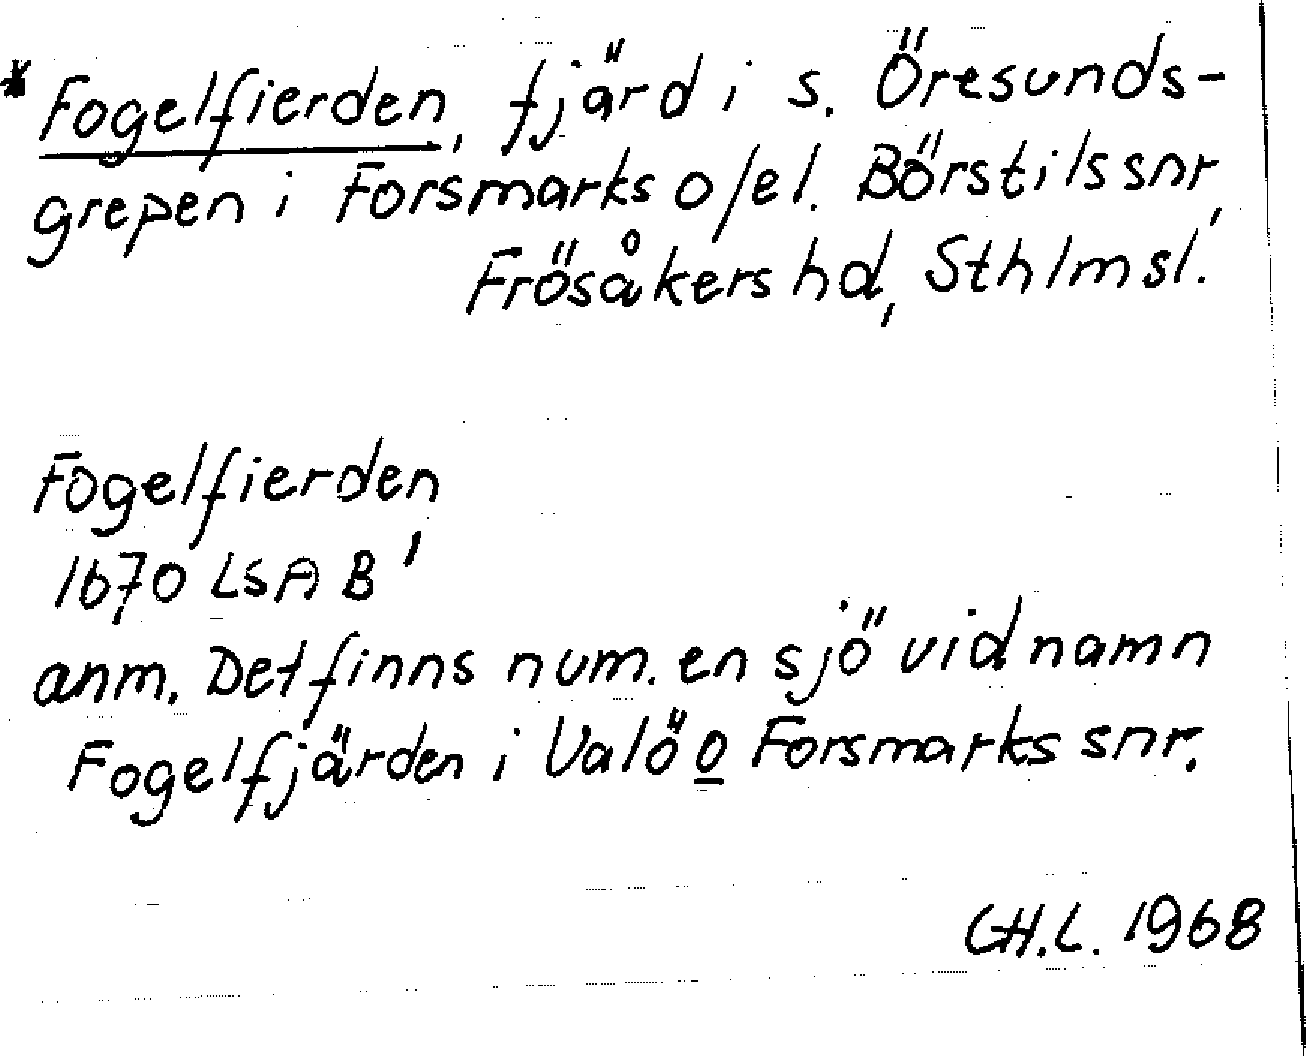 * Fogelfierden, fjärd i s. Öresunds-
grepen i Forsmarks o/el. Börstils snr,
Frösåkers hd, Sthlmsl.
Fogelfierden
1670 LSA B'
anm. Det finns num. en sjö vid namn
Fogelfjärden i Valö o Forsmarks snr.
CH.L. 1968